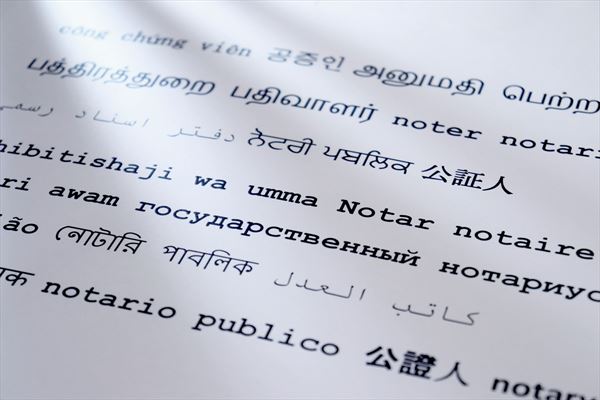 công chứng viên 공증인 அனுமதி பெற்ற
பத்திரத்துறை பதிவாளர் noter notari
دفتر اسناد رسمی ਨੋਟਰੀ ਪਬਲਿਕ 公証人
hibitishaji wa umma Notar notaire
ri awam государственный нотариус
ião নোটারি পাবলিক كاتب العدل
notario publico 公證人 notary